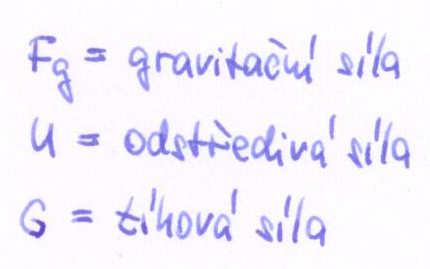 Fg = gravitační síla
U = odstředivá síla
G = tíhová síla